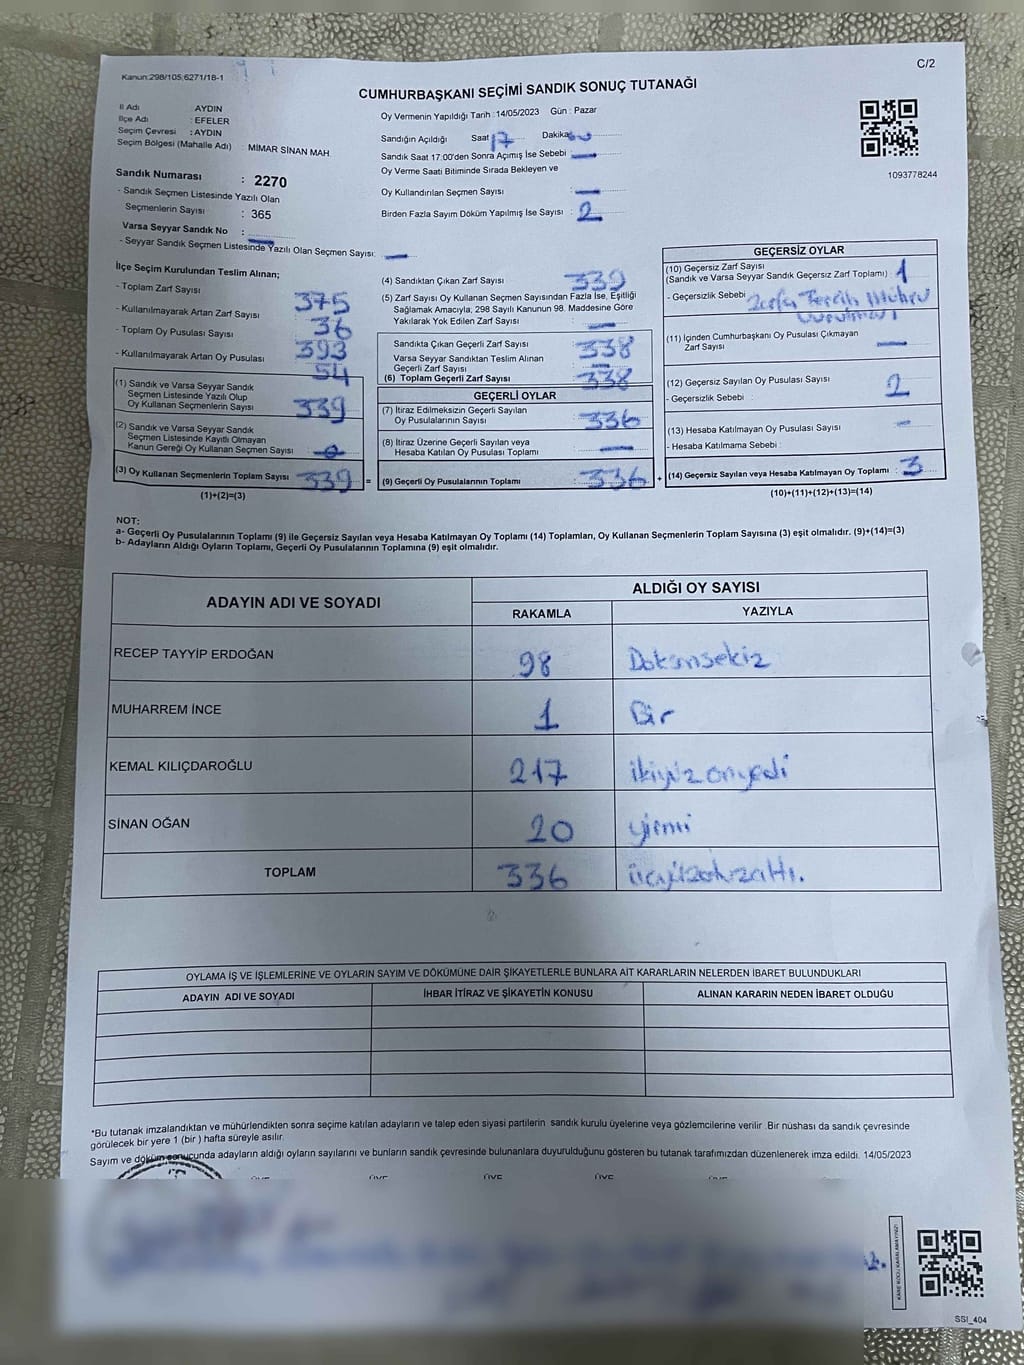 Kanun:298/105,6271/18-1
C/2
CUMHURBAŞKANI SEÇİMİ SANDIK SONUÇ TUTANAĞI
İl Adı : AYDIN
İlçe Adı : EFELER
Seçim Çevresi : AYDIN
Seçim Bölgesi (Mahalle Adı) : MİMAR SİNAN MAH.
Sandık Numarası : 2270
- Sandık Seçmen Listesinde Yazılı Olan
Seçmenlerin Sayısı : 365
Varsa Seyyar Sandık No : —
- Seyyar Sandık Seçmen Listesinde Yazılı Olan Seçmen Sayısı: —
Oy Vermenin Yapıldığı Tarih :14/05/2023 Gün : Pazar
Sandığın Açıldığı Saat 17 Dakika 00
Sandık Saat 17:00'den Sonra Açımış İse Sebebi : —
Oy Verme Saati Bitiminde Sırada Bekleyen ve
Oy Kullandırılan Seçmen Sayısı : —
Birden Fazla Sayım Döküm Yapılmış İse Sayısı : 2
1093778244
İlçe Seçim Kurulundan Teslim Alınan;
- Toplam Zarf Sayısı 375
- Kullanılmayarak Artan Zarf Sayısı 36
- Toplam Oy Pusulası Sayısı 393
- Kullanılmayarak Artan Oy Pusulası 54
(1) Sandık ve Varsa Seyyar Sandık
Seçmen Listesinde Yazılı Olup
Oy Kullanan Seçmenlerin Sayısı 339
(2) Sandık ve Varsa Seyyar Sandık
Seçmen Listesinde Kayıtlı Olmayan
Kanun Gereği Oy Kullanan Seçmen Sayısı 0
(3) Oy Kullanan Seçmenlerin Toplam Sayısı 339
(1)+(2)=(3)
(4) Sandıktan Çıkan Zarf Sayısı 339
(5) Zarf Sayısı Oy Kullanan Seçmen Sayısından Fazla İse, Eşitliği
Sağlamak Amacıyla; 298 Sayılı Kanunun 98. Maddesine Göre
Yakılarak Yok Edilen Zarf Sayısı : —
Sandıkta Çıkan Geçerli Zarf Sayısı 338
Varsa Seyyar Sandıktan Teslim Alınan
Geçerli Zarf Sayısı —
(6) Toplam Geçerli Zarf Sayısı 338
GEÇERLİ OYLAR
(7) İtiraz Edilmeksizin Geçerli Sayılan
Oy Pusulalarının Sayısı 336
(8) İtiraz Üzerine Geçerli Sayılan veya
Hesaba Katılan Oy Pusulası Toplamı —
= (9) Geçerli Oy Pusulalarının Toplamı 336
GEÇERSİZ OYLAR
(10) Geçersiz Zarf Sayısı
(Sandık ve Varsa Seyyar Sandık Geçersiz Zarf Toplamı) : 1
- Geçersizlik Sebebi Zarfa Tercih Mührü
(11) İçinden Cumhurbaşkanı Oy Pusulası Çıkmayan
Zarf Sayısı —
(12) Geçersiz Sayılan Oy Pusulası Sayısı 2
- Geçersizlik Sebebi :
(13) Hesaba Katılmayan Oy Pusulası Sayısı —
- Hesaba Katılmama Sebebi :
+ (14) Geçersiz Sayılan veya Hesaba Katılmayan Oy Toplamı : 3
(10)+(11)+(12)+(13)=(14)
NOT:
a- Geçerli Oy Pusulalarının Toplamı (9) ile Geçersiz Sayılan veya Hesaba Katılmayan Oy Toplamı (14) Toplamları, Oy Kullanan Seçmenlerin Toplam Sayısına (3) eşit olmalıdır. (9)+(14)=(3)
b- Adayların Aldığı Oyların Toplamı, Geçerli Oy Pusulalarının Toplamına (9) eşit olmalıdır.
ADAYIN ADI VE SOYADI ALDIĞI OY SAYISI
RAKAMLA YAZIYLA
RECEP TAYYİP ERDOĞAN 98 Doksansekiz
MUHARREM İNCE 1 Bir
KEMAL KILIÇDAROĞLU 217 ikiyüzonyedi
SİNAN OĞAN 20 yirmi
TOPLAM 336 üçyüzotuzaltı.
OYLAMA İŞ VE İŞLEMLERİNE VE OYLARIN SAYIM VE DÖKÜMÜNE DAİR ŞİKAYETLERLE BUNLARA AİT KARARLARIN NELERDEN İBARET BULUNDUKLARI
ADAYIN ADI VE SOYADI İHBAR İTİRAZ VE ŞİKAYETİN KONUSU ALINAN KARARIN NEDEN İBARET OLDUĞU
*Bu tutanak imzalandıktan ve mühürlendikten sonra seçime katılan adayların ve talep eden siyasi partilerin sandık kurulu üyelerine veya gözlemcilerine verilir .Bir nüshası da sandık çevresinde
görülecek bir yere 1 (bir ) hafta süreyle asılır.
Sayım ve döküm sonucunda adayların aldığı oyların sayılarını ve bunların sandık çevresinde bulunanlara duyurulduğunu gösteren bu tutanak tarafımızdan düzenlenerek imza edildi. 14/05/2023
ÜYE ÜYE ÜYE ÜYE
SSİ_404